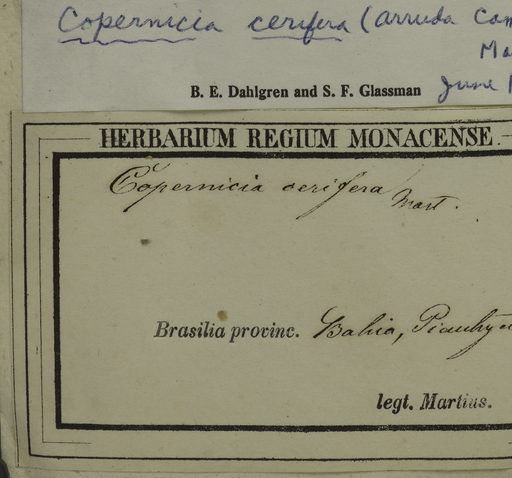 Copernicia cerifera (Arruda Cam
Ma
June 1
B. E. Dahlgren and S. F. Glassman
HERBARIUM REGIUM MONACENSE.
Copernicia cerifera Mart.
Brasilia provinc. Bahia, Piauhy
legt. Martius.